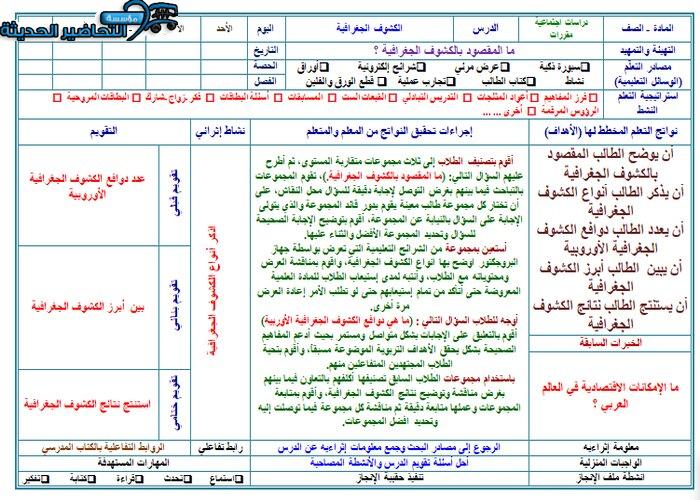 مؤسسة التحاضير الحديثة
المادة - الصف
دراسات اجتماعية
مقررات
الدرس
الكشوف الجغرافية
اليوم
الأحد
التهيئة والتمهيد
ما المقصود بالكشوف الجغرافية ؟
التاريخ
مصادر التعلم
(الوسائل التعليمية)
سبورة ذكية
عرض مرئي
شرائح إلكترونية
أوراق
الحصة
نشاط
كتاب الطالب
تجارب عملية
قطع الورق والفلين
الفصل
استراتيجية التعلم
النشط
فرز المفاهيم
أعواد المثلجات
التدريس التبادلي
القبعات الست
المسابقات
أسئلة البطاقات
فكر ـ زواج ـ شارك
البطاقات المروحية
الرؤوس المرقمة
أخرى ... ...
نواتج التعلم المخطط لها (الأهداف)
إجراءات تحقيق النواتج من المعلم والمتعلم
نشاط إثرائي
التقويم
أن يوضح الطالب المقصود
بالكشوف الجغرافية
أن يذكر الطالب أنواع الكشوف
الجغرافية
أن يعدد الطالب دوافع الكشوف
الجغرافية الأوروبية
أن يبين الطالب أبرز الكشوف
الجغرافية
أن يستنتج الطالب نتائج الكشوف
الجغرافية
الخبرات السابقة
ما الإمكانات الاقتصادية في العالم
العربي ؟
أقوم بتصنيف الطلاب إلى ثلاث مجموعات متقاربة المستوى، ثم أطرح
عليهم السؤال التالي: (ما المقصود بالكشوف الجغرافية.)، تقوم المجموعات
بالتباحث فيما بينهم بغرض التوصل لإجابة دقيقة للسؤال محل النقاش، على
أن تختار كل مجموعة طالب معينة يقوم بدور قائد المجموعة والذي يتولى
الإجابة على السؤال بالنيابة عن المجموعة، أقوم بتوضيح الإجابة الصحيحة
للسؤال وتحديد المجموعة الأفضل والثناء عليها.
أستعين بمجموعة من الشرائح التعليمية التي تعرض بواسطة جهاز
البروجكتور أوضح بها أنواع الكشوف الجغرافية، وأقوم بمناقشة العرض
ومحتوياته مع الطلاب، وأنتبه لمدى إستيعاب الطلاب للمادة العلمية
المعروضة حتى أتأكد من تمام إستيعابهم حتى لو تطلب الأمر إعادة العرض
مرة أخرى.
أوجه للطلاب السؤال التالي : (ما هي دوافع الكشوف الجغرافية الأوربية)
أقوم بالتعليق على الإجابات بشكل متواصل ومستمر بحيث أدعم المفاهيم
الصحيحة بشكل يحقق الأهداف التربوية الموضوعة مسبقاً، وأقوم بتحية
الطلاب المجتهدين المتفاعلين منهم.
باستخدام مجموعات الطلاب السابق تصنيفها أكلفهم بالتعاون فيما بينهم
بغرض مناقشة وتوضيح نتائج الكشوف الجغرافية، وأقوم بمتابعة
المجموعات وعملها متابعة دقيقة ثم مناقشة كل مجموعة فيما توصلت إليه
وتحديد المجموعة الأفضل
اذكر أنواع الكشوف الجغرافية
تقويم قبلي
عدد دوافع الكشوف الجغرافية
الأوروبية
تقويم بنائي
بين أبرز الكشوف الجغرافية
تقويم ختامي
استنتج نتائج الكشوف الجغرافية
معلومة إثراءية
الرجوع إلى مصادر البحث وجمع معلومات إثراءيه عن الدرس
رابط تفاعلي
الروابط التفاعلية بالكتاب المدرسي
الواجبات المنزلية
أحل أسئلة تقويم الدرس والأنشطة المصاحبة
المهارات المستهدفة
انشطة ملف الإنجاز
تنفيذ حقيبة الإنجاز
استماع
تحدث
قراءة
كتابة
تفكير